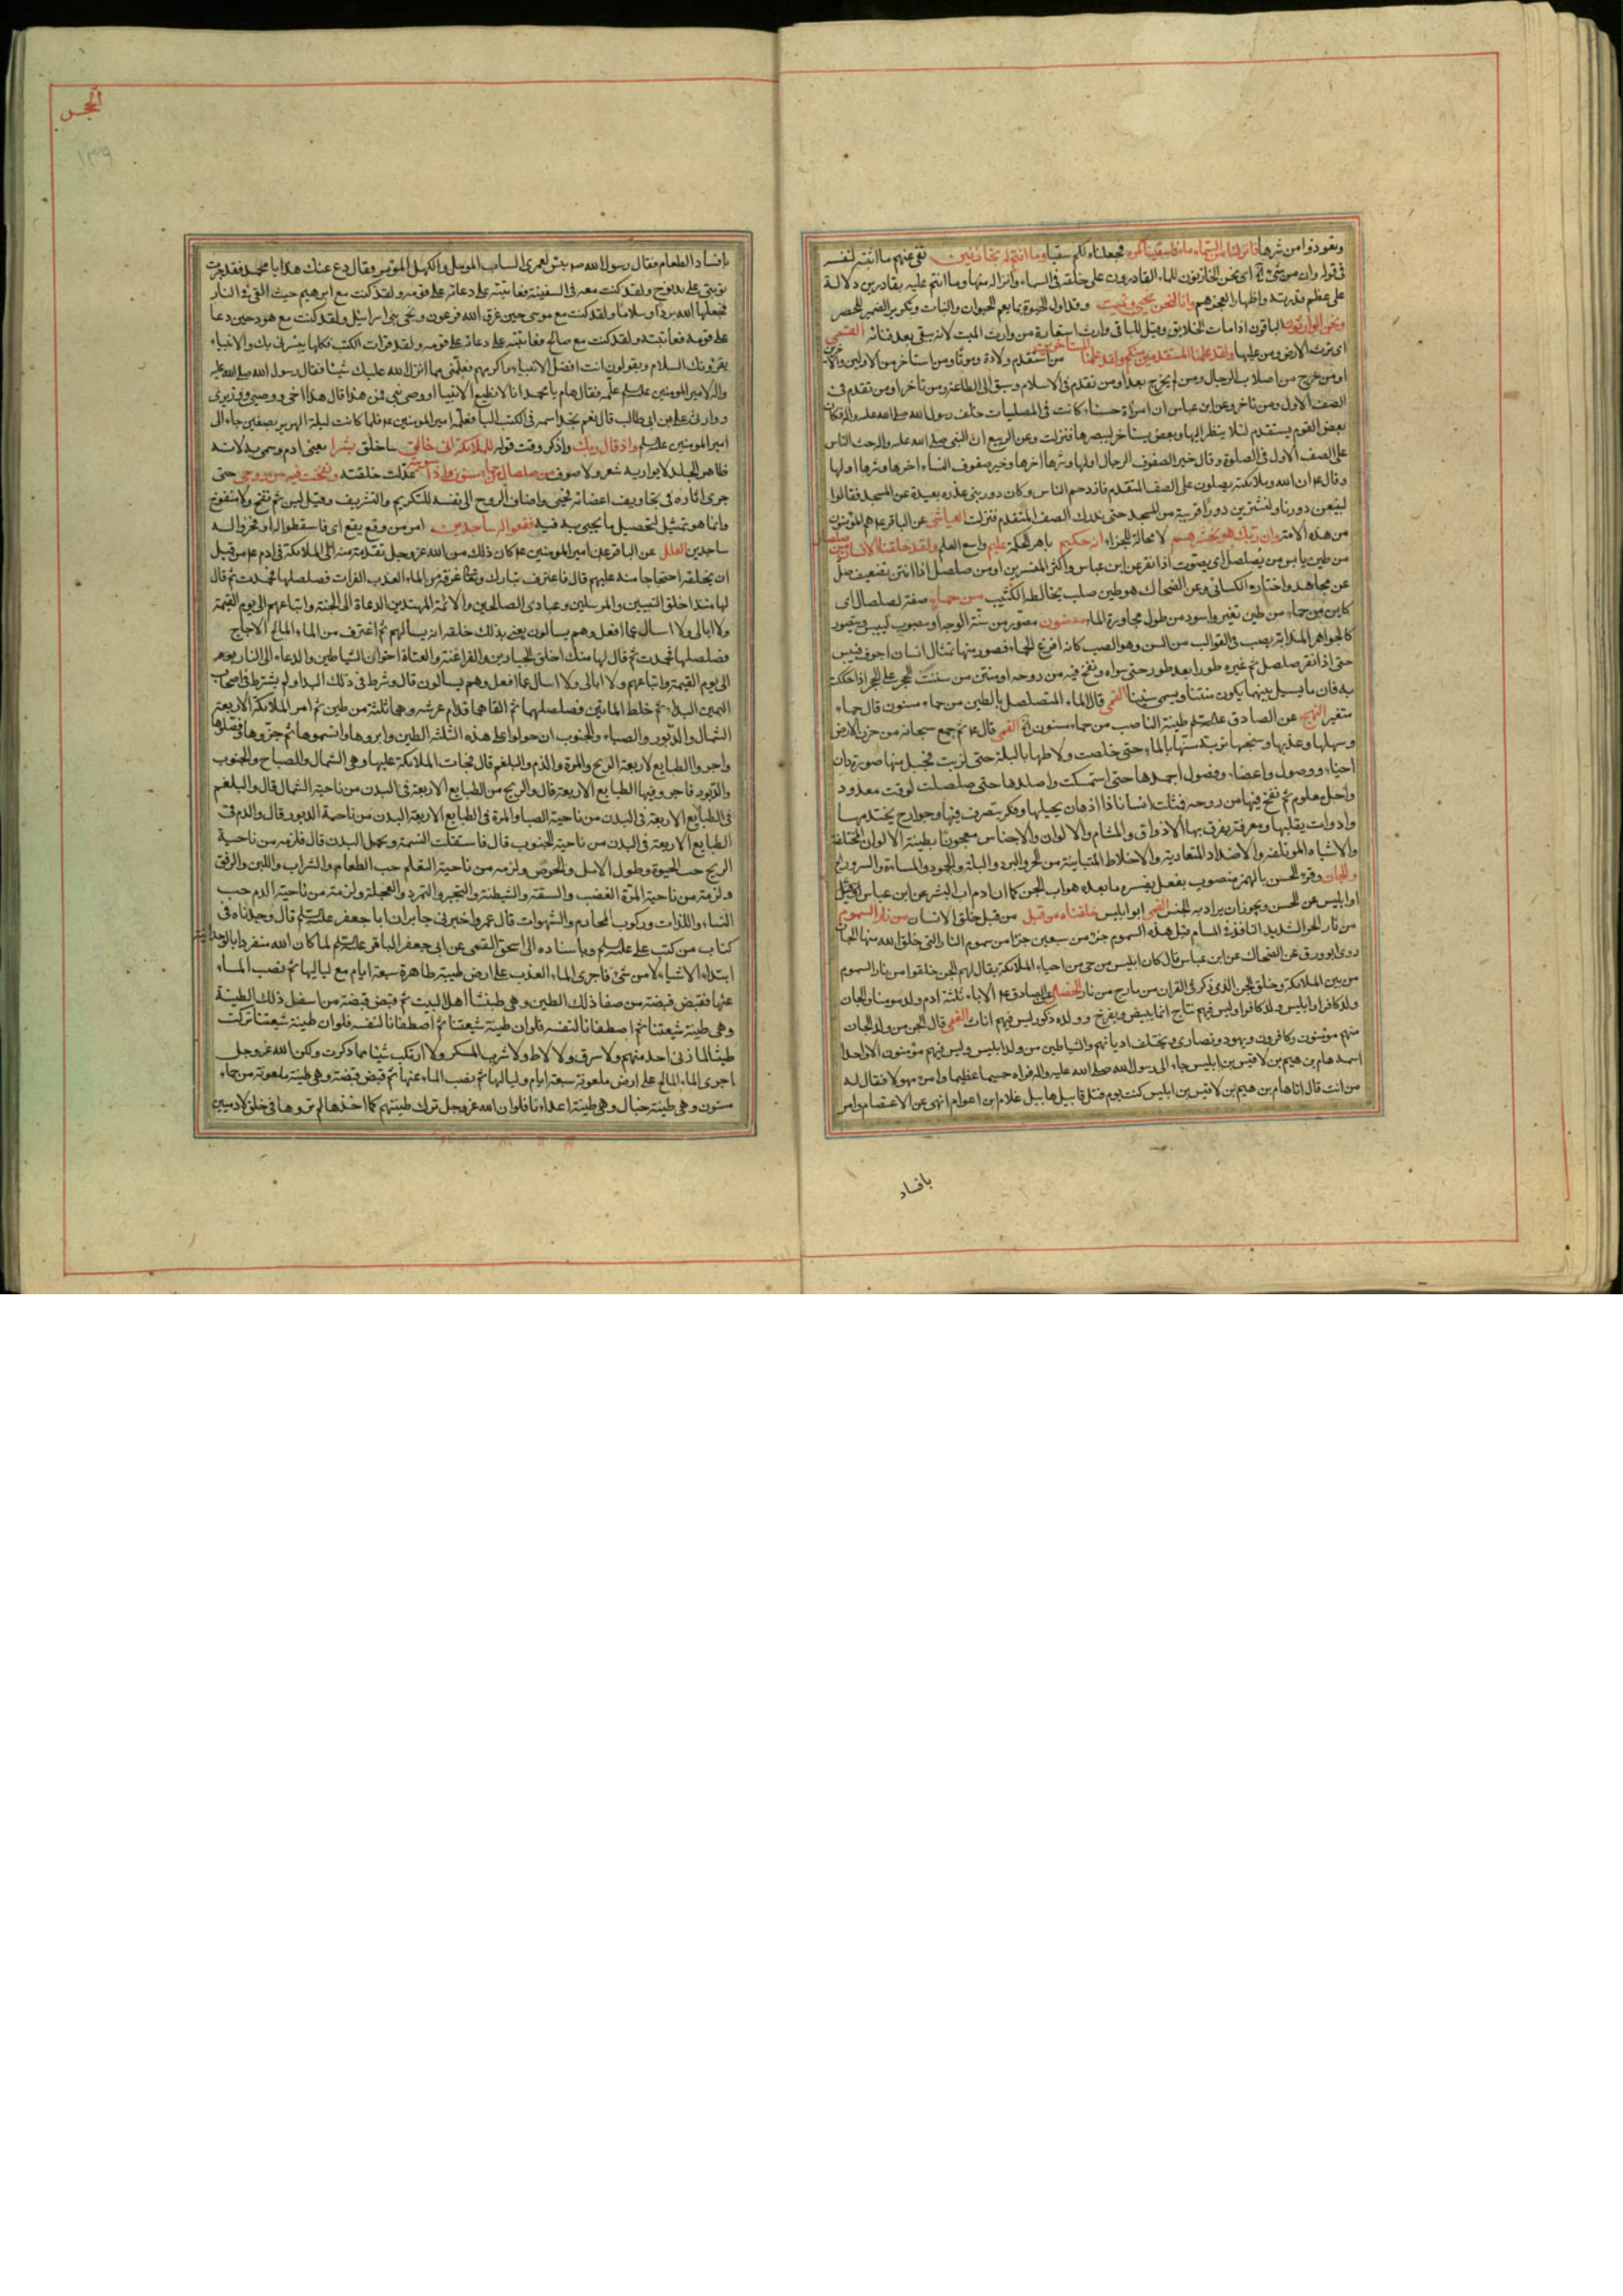 وتعوذوا من شرها فانزلنا من السماء ماء فاسقيناكموه فجعلناه لكم سقيا وما انتم له بخازنين نفى عنهم ما اثبته لنفسه
فى قوله وان من شئ اى نحن الخازنون للماء القادرون على خلقه فى السماء وانزاله منها وما انتم عليه بقادرين دلالة
على عظم قدرته واظهارا لعجزهم وانا لنحن نحيى ونميت وقد اول الحيوة بما يعم الحيوان والنبات وتكرير الضمير للحصر
ونحن الوارثون الباقون اذا مات الخلايق وقيل للباقى وارث استعارة من وارث الميت لانه يبقى بعد فنائه القمى
اى نرث الارض ومن عليها ولقد علمنا المستقدمين منكم ولقد علمنا المستاخرين من استقدم ولادة وموتا ومن استاخر من الاولين والاخرين
او من خرج من اصلاب الرجال ومن لم يخرج بعد او من تقدم فى الاسلام وسبق الى الطاعة ومن تاخر او من تقدم فى
الصف الاول ومن تاخر وعن ابن عباس ان امرأة حسناء كانت فى المصليات خلف رسول الله صلى الله عليه واله فكان
بعض القوم يستقدم لئلا ينظر اليها وبعض يستاخر ليبصرها فنزلت وعن الربيع ان النبى صلى الله عليه واله حث الناس
على الصف الاول فى الصلوة وقال خير الصفوف الرجال اولها وشرها اخرها وخير صفوف النساء اخرها وشرها اولها
وقال ع ان الله وملائكته يصلون على الصف المتقدم فازدحم الناس وكان دور بنى عذره بعيدة عن المسجد فقالوا
لنبيعن دورنا ولنشترين دورا قريبة من المسجد حتى ندرك الصف المتقدم فنزلت العياشى عن الباقر ع هم المؤمنون
من هذه الامة وان ربك هو يحشرهم لا محالة للجزاء انه حكيم باهر الحكمة عليم واسع العلم ولقد خلقنا الانسان من صلصال
من طين يابس من يصلصل اى يصوت اذا نقر عن ابن عباس واكثر المفسرين او من صلصل اذا انتن تضعيف صل
عن مجاهد واختاره الكسائى وعن الضحاك هو طين صلب يخالطه الكثيب من حماء صفة لصلصال اى
كاين من حماء من طين تغير واسود من طول مجاورة الماء مسنون مصور من سنة الوجه او مصبوب لييبس ويتصور
كالجواهر المذابة يصب فى القوالب من السن وهو الصب كانه افرغ الحماء فصور منها تمثال انسان اجوف فيبس
حتى اذا نقر صلصل ثم غيره طورا بعد طور حتى سواه ونفخ فيه من روحه او منتن من سننت الحجر على الحجر اذا حككته
به فان ما يسيل بينهما يكون منتنا ويسمى سنينا القمى قال الماء المتصلصل بالطين من حماء مسنون قال حماء
متغير النهج عن الصادق عليه السلم طينة الناصب من حماء مسنون القمى قال ع ثم جمع سبحانه من حزن الارض
وسهلها وعذبها وسبخها تربة سنها بالماء حتى خلصت ولاطها بالبلة حتى لزبت فجبل منها صورة ذات
احناء ووصول واعضاء وفصول اجمدها حتى استمسكت واصلدها حتى صلصلت لوقت معدود
واجل معلوم ثم نفخ فيها من روحه فمثلت انسانا ذا اذهان يجيلها وفكر يتصرف فيها وجوارح يختدمها
وادوات يقلبها ومعرفة يفرق بها الاذواق والمشام والالوان والاجناس معجونا بطينة الالوان المختلفة
والاشباه المؤتلفة والاضداد المتعادية والاخلاط المتباينة من الحر والبرد والبلة والجمود والمساءة والسرور
والجان وقرء الحسن بالهمز منصوب بفعل يفسره ما بعده هو اب الجن كما ان ادم اب البشر عن ابن عباس
او ابليس عن الحسن ويجوز ان يراد به الجنس القمى ابو ابليس خلقناه من قبل من قبل خلق الانسان من نار السموم
من نار الحر الشديد النافذ فى المسام قيل هذه السموم جزء من سبعين جزءا من سموم النار التى خلق الله منها الجان
روى ابو ورق عن الضحاك عن ابن عباس قال كان ابليس من حى من احياء الملائكة يقال لهم الجن خلقوا من نار السموم
من بين الملائكة وخلق الجن الذى ذكر فى القران من مارج من نار الخصال عن الصادق ع الاباء ثلثة ادم ولد مومنا والجان
ولد كافرا وابليس ولد كافرا وليس فيهم نتاج انما يبيض ويفرخ وولده ذكور ليس فيهم اناث القمى قال الجن من ولد الجان
منهم مؤمنون وكافرون ويهود ونصارى ويختلف اديانهم والشياطين من ولد ابليس وليس فيهم مؤمنون الا واحدا
اسمه هام بن هيم بن لاقيس بن ابليس جاء الى رسول الله صلى الله عليه واله فراه جسيما عظيما وامرء مهولا فقال له
من انت قال انا هام بن هيم بن لاقيس بن ابليس كنت يوم قتل قابيل هابيل غلام ابن اعوام انهى عن الاعتصام وامر
بافساد
الحجر
١٣٩
بافساد الطعام فقال رسول الله ص بئس لعمرى الشاب المومل والكهل المؤمر فقال دع عنك هذا يا محمد فقد جرت
توبتى على يد نوح ولقد كنت معه فى السفينة فعاتبته على دعائه على قومه ولقد كنت مع ابرهيم حيث القى فى النار
فجعلها الله بردا وسلاما ولقد كنت مع موسى حين غرق الله فرعون ونجى بنى اسرائيل ولقد كنت مع هود حين دعا
على قومه فعاتبته ولقد كنت مع صالح فعاتبته على دعائه على قومه ولقد قرات الكتب فكلها يبشرنى بك والانبياء
يقرؤنك السلام ويقولون انت افضل الانبياء واكرمهم فعلمنى مما انزل الله عليك شيئا فقال رسول الله صلى الله عليه
واله لامير المومنين عليه السلم علمه فقال هام يا محمد انا لا نطيع الا نبيا او وصى نبى فمن هذا قال هذا اخى ووصيى ووزيرى
ووارثى على بن ابى طالب قال نعم نجد اسمه فى الكتب اليا فعلمه امير المومنين ع فلما كانت ليلة الهرير بصفين جاء الى
امير المومنين عليه السلم واذ قال ربك واذكر وقت قوله للملائكة انى خالق ساخلق بشرا يعنى ادم وسمى به لانه
ظاهر الجلد لا يواريه شعر ولا صوف من صلصال من حماء مسنون فاذا سويته عدلت خلقته ونفخت فيه من روحى حتى
جرى اثاره فى تجاويف اعضائه فحيى واضاف الروح الى نفسه للتكريم والتشريف وقيل ليس ثم نفخ ولا منفوخ
وانما هو تمثيل لتحصيل ما يحيى به فيه فقعوا له ساجدين امر من وقع يقع اى فاسقطوا له او فخروا له
ساجدين العلل عن الباقر عن امير المومنين ع كان ذلك من الله عز وجل تقدمة منه الى الملائكة فى ادم ع من قبل
ان يخلقه احتجاجا منه عليهم قال فاغترف تبارك وتعالى غرفة من الماء العذب الفرات فصلصلها فجمدت ثم قال
لها منك اخلق النبيين والمرسلين وعبادى الصالحين والائمة المهتدين الدعاة الى الجنة واتباعهم الى يوم القيمة
ولا ابالى ولا اسال عما افعل وهم يسالون يعنى بذلك خلقه انه يسالهم ثم اغترف من الماء المالح الاجاج
فصلصلها فجمدت ثم قال لها منك اخلق الجبارين والفراعنة والعتاة اخوان الشياطين والدعاة الى النار
الى يوم القيمة واتباعهم ولا ابالى ولا اسال عما افعل وهم يسالون قال وشرط فى ذلك البداء ولم يشترط فى اصحاب
اليمين البداء ثم خلط المائين فصلصلهما ثم القاهما قدام عرشه وهما ثلثة من طين ثم امر الملائكة الاربعة
الشمال والدبور والصباء والجنوب ان جولوا على هذه الثلثة الطين وابروها وانسموها ثم جزوها وفصلوها
واجروا الطبايع الاربعة الريح والمرة والدم والبلغم قال فجات الملائكة عليها وهى الشمال والصباح والجنوب
والدبور فاجروا فيها الطبايع الاربعة قال والريح من الطبايع الاربعة فى البدن من ناحية الشمال قال والبلغم
فى الطبايع الاربعة فى البدن من ناحية الصبا والمرة فى الطبايع الاربعة البدن من ناحية الدبور قال والدم فى
الطبايع الاربعة فى البدن من ناحية الجنوب قال فاستقلت النسمة وكمل البدن قال فلزمه من ناحية
الريح حب الحيوة وطول الامل والحرص ولزمه من ناحية البلغم حب الطعام والشراب واللين والرفق
ولزمته من ناحية المرة الغضب والسفه والشيطنة والتجبر والتمرد والعجلة ولزمته من ناحية الدم حب
النساء واللذات وركوب المحارم والشهوات قال عمرو اخبرنى جابر ان ابا جعفر عليه السلم قال وجدناه فى
كتاب من كتب على عليه السلم وباسناده الى اسحق القمى عن ابى جعفر الباقر عليه السلم لما كان الله منفردا بالوحدانية
ابتداء الاشياء لا من شئ فاجرى الماء العذب على ارض طيبة طاهرة سبعة ايام مع لياليها ثم نضب الماء
عنها فقبض قبضة من صفا ذلك الطين وهى طينتنا اهل البيت ثم قبض قبضة من اسفل ذلك الطينة
وهى طينة شيعتنا ثم اصطفانا لنفسه فلو ان طينة شيعتنا تركت
طينتنا لما زنى احد منهم ولا سرق ولا لاط ولا شرب المسكر ولا ارتكب شيئا مما ذكرت ولكن الله عز وجل
اجرى الماء المالح على ارض ملعونة سبعة ايام ولياليها ثم نضب الماء عنها ثم قبض قبضة وهى طينة ملعونة من حماء
مسنون وهى طينة خبال وهى طينة اعدائنا فلو ان الله عز وجل ترك طينتهم كما اخذها لم تروها فى خلق الادميين